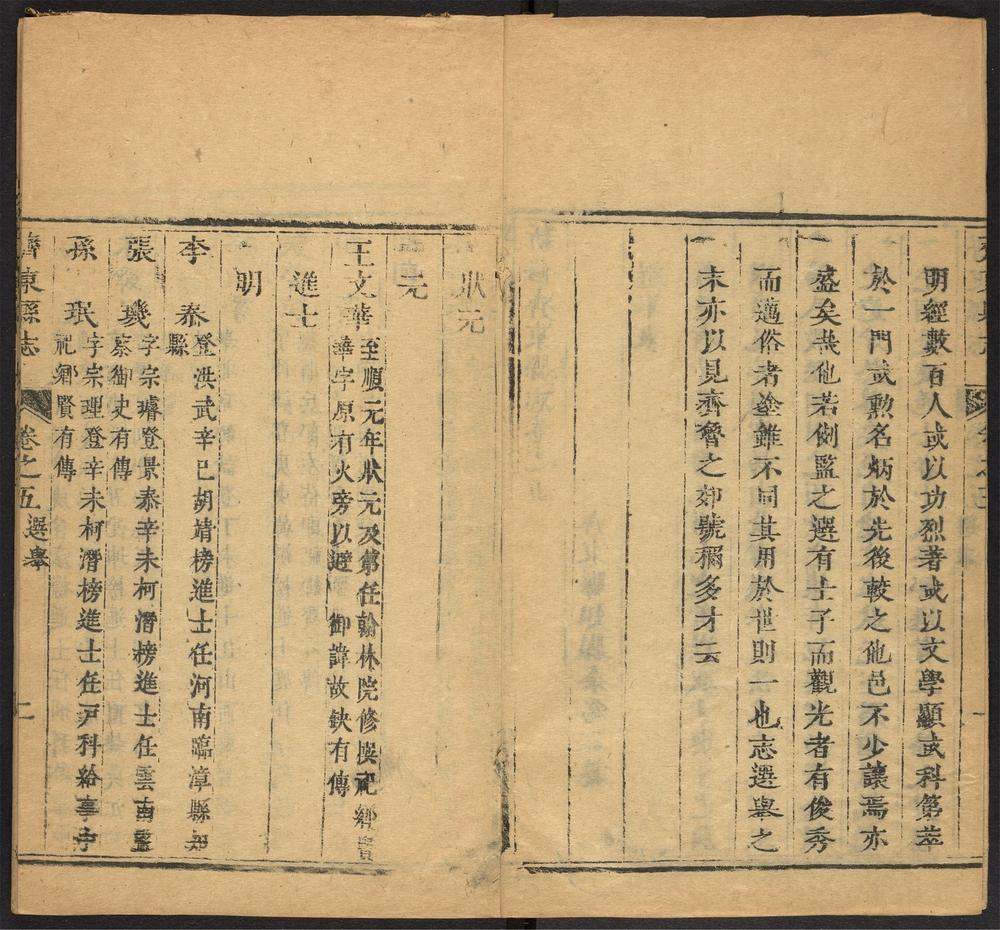 明經數百人或以功烈著或以文學顯或科第萃
於一門或勲名炳於先後較之他邑不少讓焉亦
盛矣哉他若倒監之選有士子而觀光者有俊秀
而邁俗者塗雖不同其用於世則一也志選舉之
末亦以見齊魯之郊號稱多才云
狀元
元
王文華 至順元年狀元及第任翰林院修撰祀鄉賢
華字原有火旁以避 御諱故缺有傳
進士
明
李 泰 登洪武辛巳胡靖榜進士任河南臨漳縣知
縣
張 璣 字宗璿登景泰辛未柯潛榜進士任雲南監
察御史有傳
孫 珉 字宗理登辛未柯潛榜進士任戸科給事中
祀鄉賢有傳
齊東縣志 卷之五 選舉 二